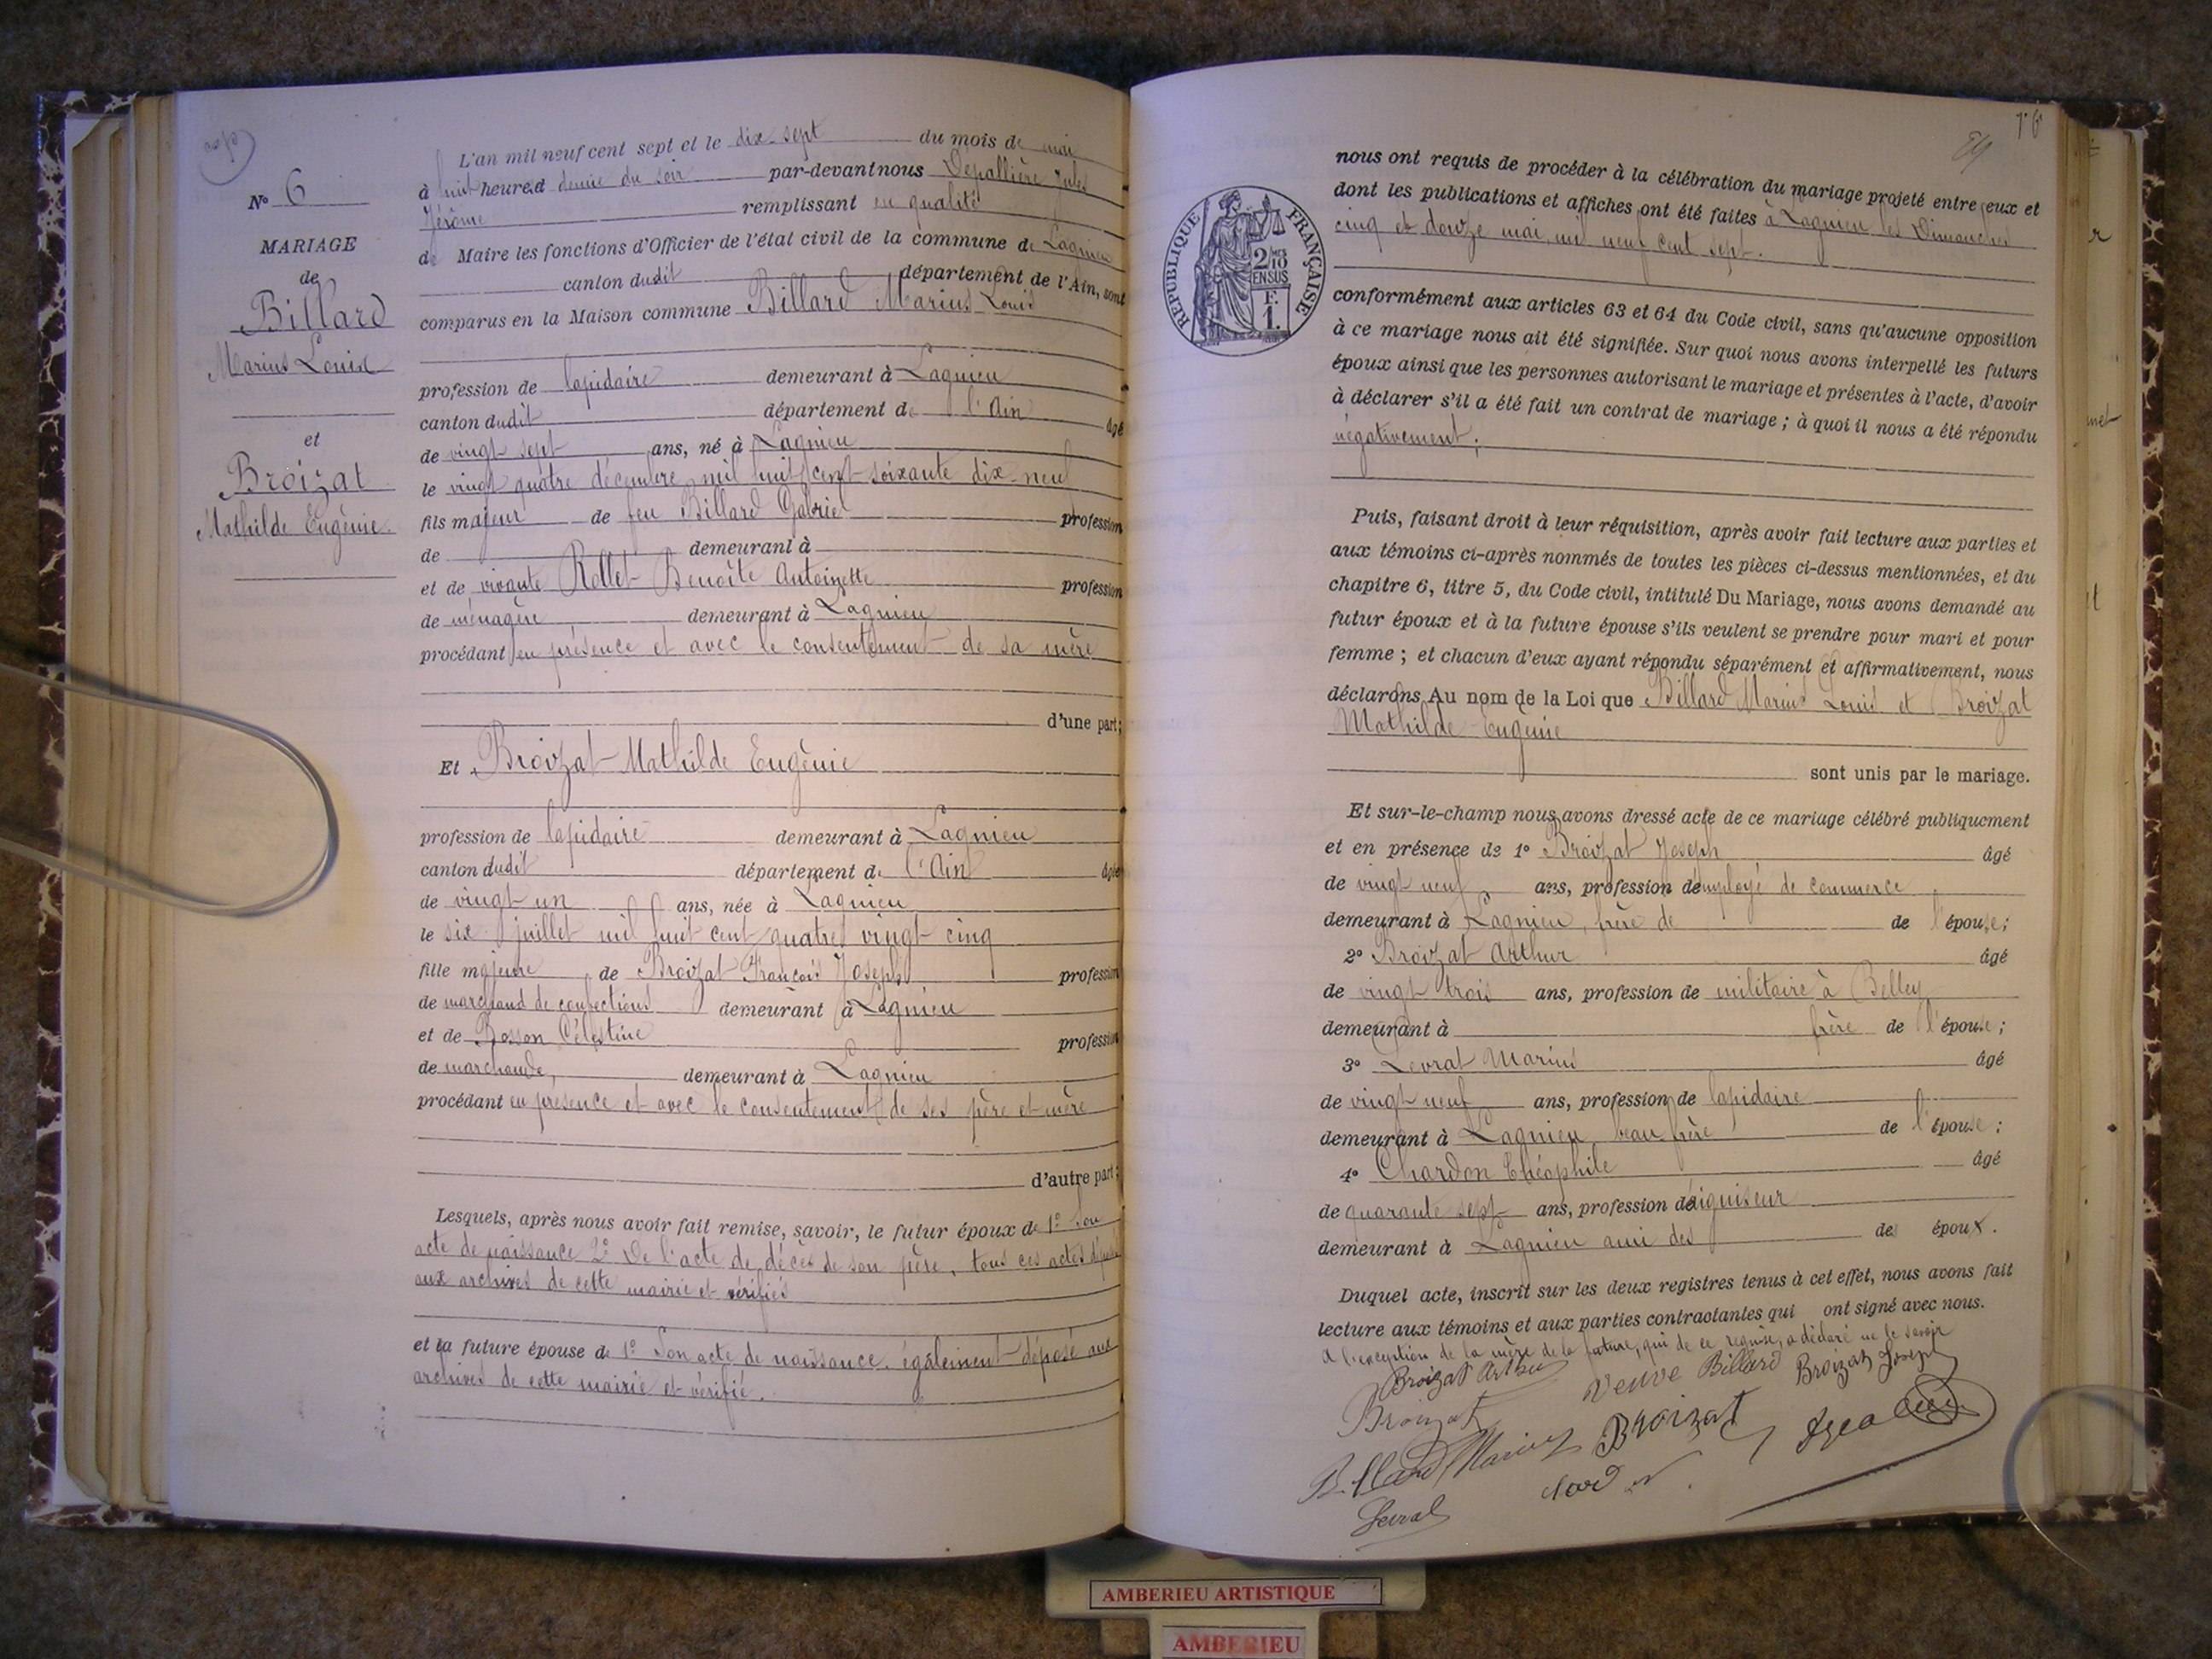 N° 6
MARIAGE
de
Billard
Marius Louis
et
Broizat
Mathilde Eugénie.
L'an mil neuf cent sept et le dix-sept du mois de mai
à huit heures et demie du soir par-devant nous Depallière Jules
Jérôme remplissant en qualité
de Maire les fonctions d'Officier de l'état civil de la commune de Lagnieu
canton dudit département de l'Ain, sont
comparus en la Maison commune Billard Marius Louis
profession de lapidaire demeurant à Lagnieu
canton dudit département de l'Ain âgé
de vingt sept ans, né à Lagnieu
le vingt quatre décembre mil huit cent soixante dix-neuf
fils majeur de feu Billard Gabriel profession
de demeurant à
et de vivante Rollet Benoîte Antoinette profession
de ménagère demeurant à Lagnieu
procédant en présence et avec le consentement de sa mère
d'une part;
Et Broizat Mathilde Eugénie
profession de lapidaire demeurant à Lagnieu
canton dudit département de l'Ain âgée
de vingt un ans, née à Lagnieu
le six juillet mil huit cent quatre vingt cinq
fille majeure de Broizat François Joseph profession
de marchand de confections demeurant à Lagnieu
et de Bosson Célestine profession
de marchande, demeurant à Lagnieu
procédant en présence et avec le consentement de ses père et mère
d'autre part;
Lesquels, après nous avoir fait remise, savoir, le futur époux de 1° son
acte de naissance 2° De l'acte de décès de son père, tous ces actes déposés
aux archives de cette mairie et vérifiés
et la future épouse de 1° Son acte de naissance, également déposé aux
archives de cette mairie et vérifié.
89
76
RÉPUBLIQUE FRANÇAISE
2/10 EN SUS
F. 1.
nous ont requis de procéder à la célébration du mariage projeté entre eux et
dont les publications et affiches ont été faites à Lagnieu les Dimanches
cinq et douze mai mil neuf cent sept.
conformément aux articles 63 et 64 du Code civil, sans qu'aucune opposition
à ce mariage nous ait été signifiée. Sur quoi nous avons interpellé les futurs
époux ainsi que les personnes autorisant le mariage et présentes à l'acte, d'avoir
à déclarer s'il a été fait un contrat de mariage; à quoi il nous a été répondu
négativement;
Puis, faisant droit à leur réquisition, après avoir fait lecture aux parties et
aux témoins ci-après nommés de toutes les pièces ci-dessus mentionnées, et du
chapitre 6, titre 5, du Code civil, intitulé Du Mariage, nous avons demandé au
futur époux et à la future épouse s'ils veulent se prendre pour mari et pour
femme; et chacun d'eux ayant répondu séparément et affirmativement, nous
déclarons Au nom de la Loi que Billard Marius Louis et Broizat
Mathilde Eugénie
sont unis par le mariage.
Et sur-le-champ nous avons dressé acte de ce mariage célébré publiquement
et en présence de 1° Broizat Joseph âgé
de vingt neuf ans, profession d'employé de commerce
demeurant à Lagnieu, frère de de l'épouse;
2° Broizat Arthur âgé
de vingt trois ans, profession de militaire à Belley
demeurant à frère de l'épouse;
3° Levrat Marius âgé
de vingt neuf ans, profession de lapidaire
demeurant à Lagnieu beau frère de l'épouse;
4° Chardon Théophile âgé
de quarante sept ans, profession d'aiguiseur
demeurant à Lagnieu ami des des époux.
Duquel acte, inscrit sur les deux registres tenus à cet effet, nous avons fait
lecture aux témoins et aux parties contractantes qui ont signé avec nous.
à l'exception de la mère de la future, qui de ce requise, a déclaré ne le savoir
Broizat Arthur Veuve Billard Broizat Joseph
Broizat
Billard Marius Broizat
Levrat
AMBERIEU ARTISTIQUE
AMBERIEU